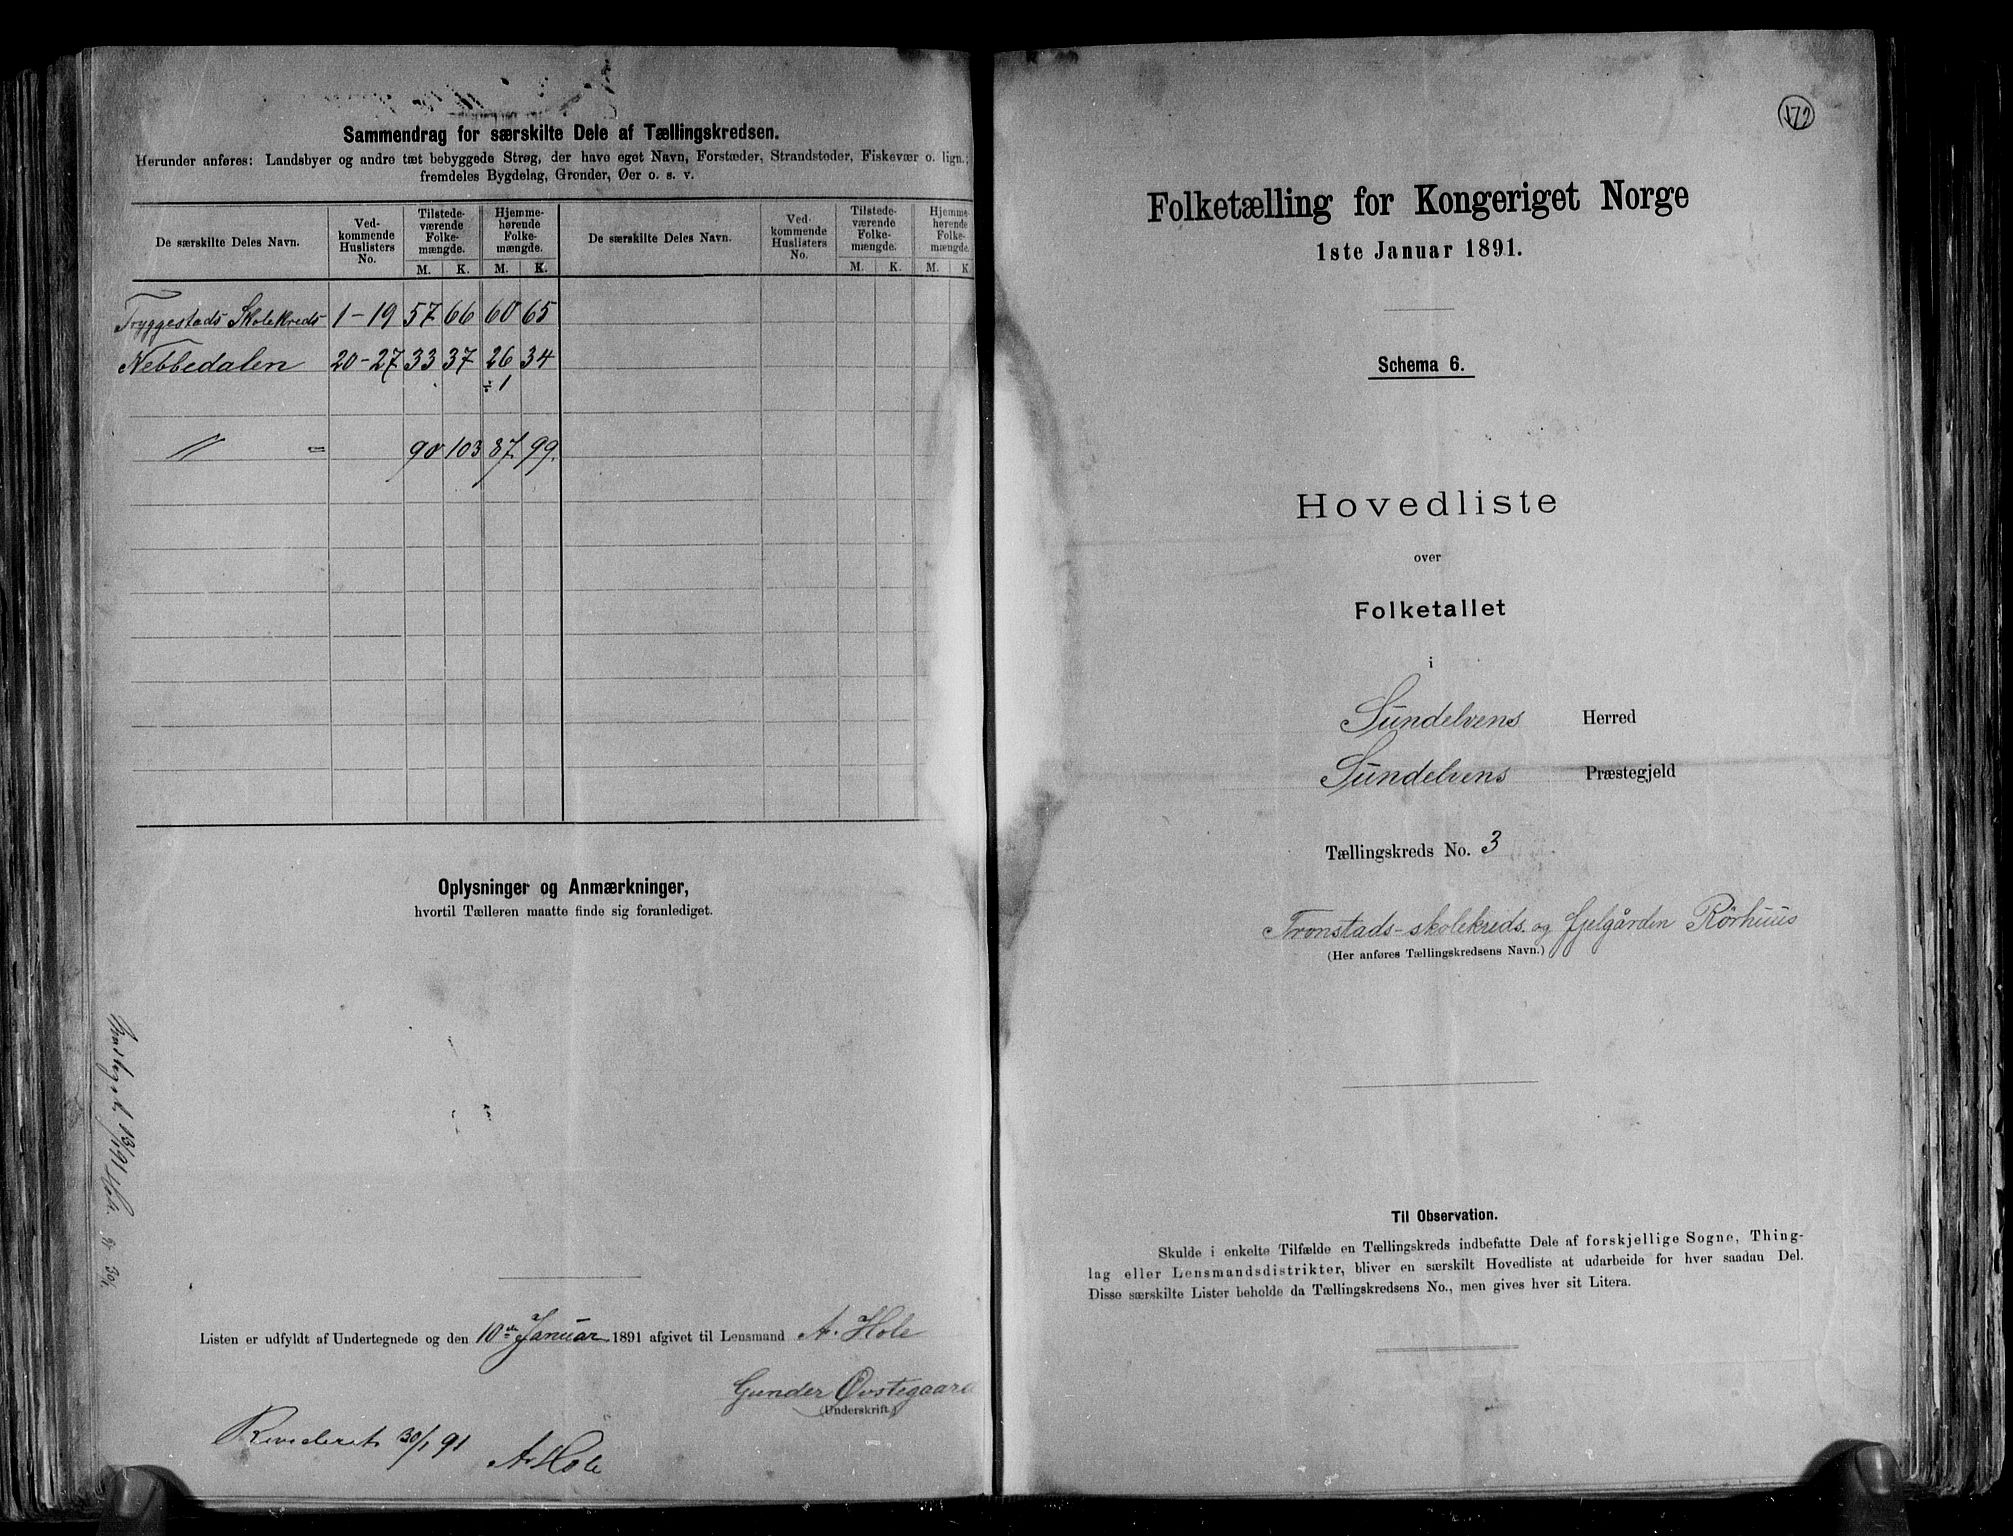 Sammendrag for særskilte Dele af Tællingskredsen.
Herunder anføres: Landsbyer og andre tæt bebyggede Strøg, der have eget Navn, Forstæder, Strandsteder, Fiskevær o. lign.;
fremdeles Bygdelag, Grender, Øer o. s. v.
De særskilte Deles Navn. Ved-kommende Huslisters No. Tilstede-værende Folke-mængde. Hjemme-hørende Folke-mængde. De særskilte Deles Navn. Ved-kommende Huslisters No. Tilstede-værende Folke-mængde. Hjemme-hørende Folke-mængde.
M. K. M. K. M. K. M. K
Tryggestads Skolekreds 1-19 57 66 60 65
Nebbedalen 20-27 33 37 26 34
÷ 1
〃 = 90 103 87 99.
Oplysninger og Anmærkninger,
hvortil Tælleren maatte finde sig foranlediget.
Listen er udfyldt af Undertegnede og den 10de Januar 1891 afgivet til Lensmand A. Hole
Gunder Øvstegaard
(Underskrift.)
Revideret 30/1 91
A. Hole
172
Folketælling for Kongeriget Norge
1ste Januar 1891.
Schema 6.
Hovedliste
over
Folketallet
i
Sundelvens Herred
Sundelvens Præstegjeld
Tællingskreds No. 3
Tronstads-skolekreds og fjelgården Rörhuus
(Her anføres Tællingskredsens Navn.)
Til Observation.
Skulde i enkelte Tilfælde en Tællingskreds indbefatte Dele af forskjellige Sogne, Thing-
lag eller Lensmandsdistrikter, bliver en særskilt Hovedliste at udarbeide for hver saadan Del.
Disse særskilte Lister beholde da Tællingskredsens No., men gives hver sit Litera.